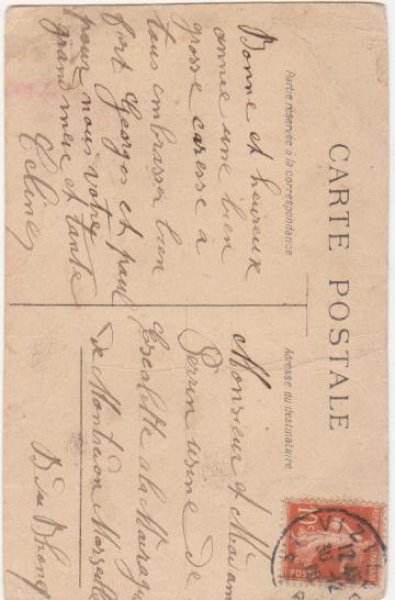 CARTE POSTALE
Partie réservée à la correspondance
Adresse du destinataire
Bonne et heureuse
année une bien
grosse caresse à
tous embrasser bien
fort Georges et paul
pour nous votre
grand mère et tante
Celine
Monsieur et Madame
Perrin usine de
Escalette a la Madrague
de Montredon Marseille
B du Rhone
10